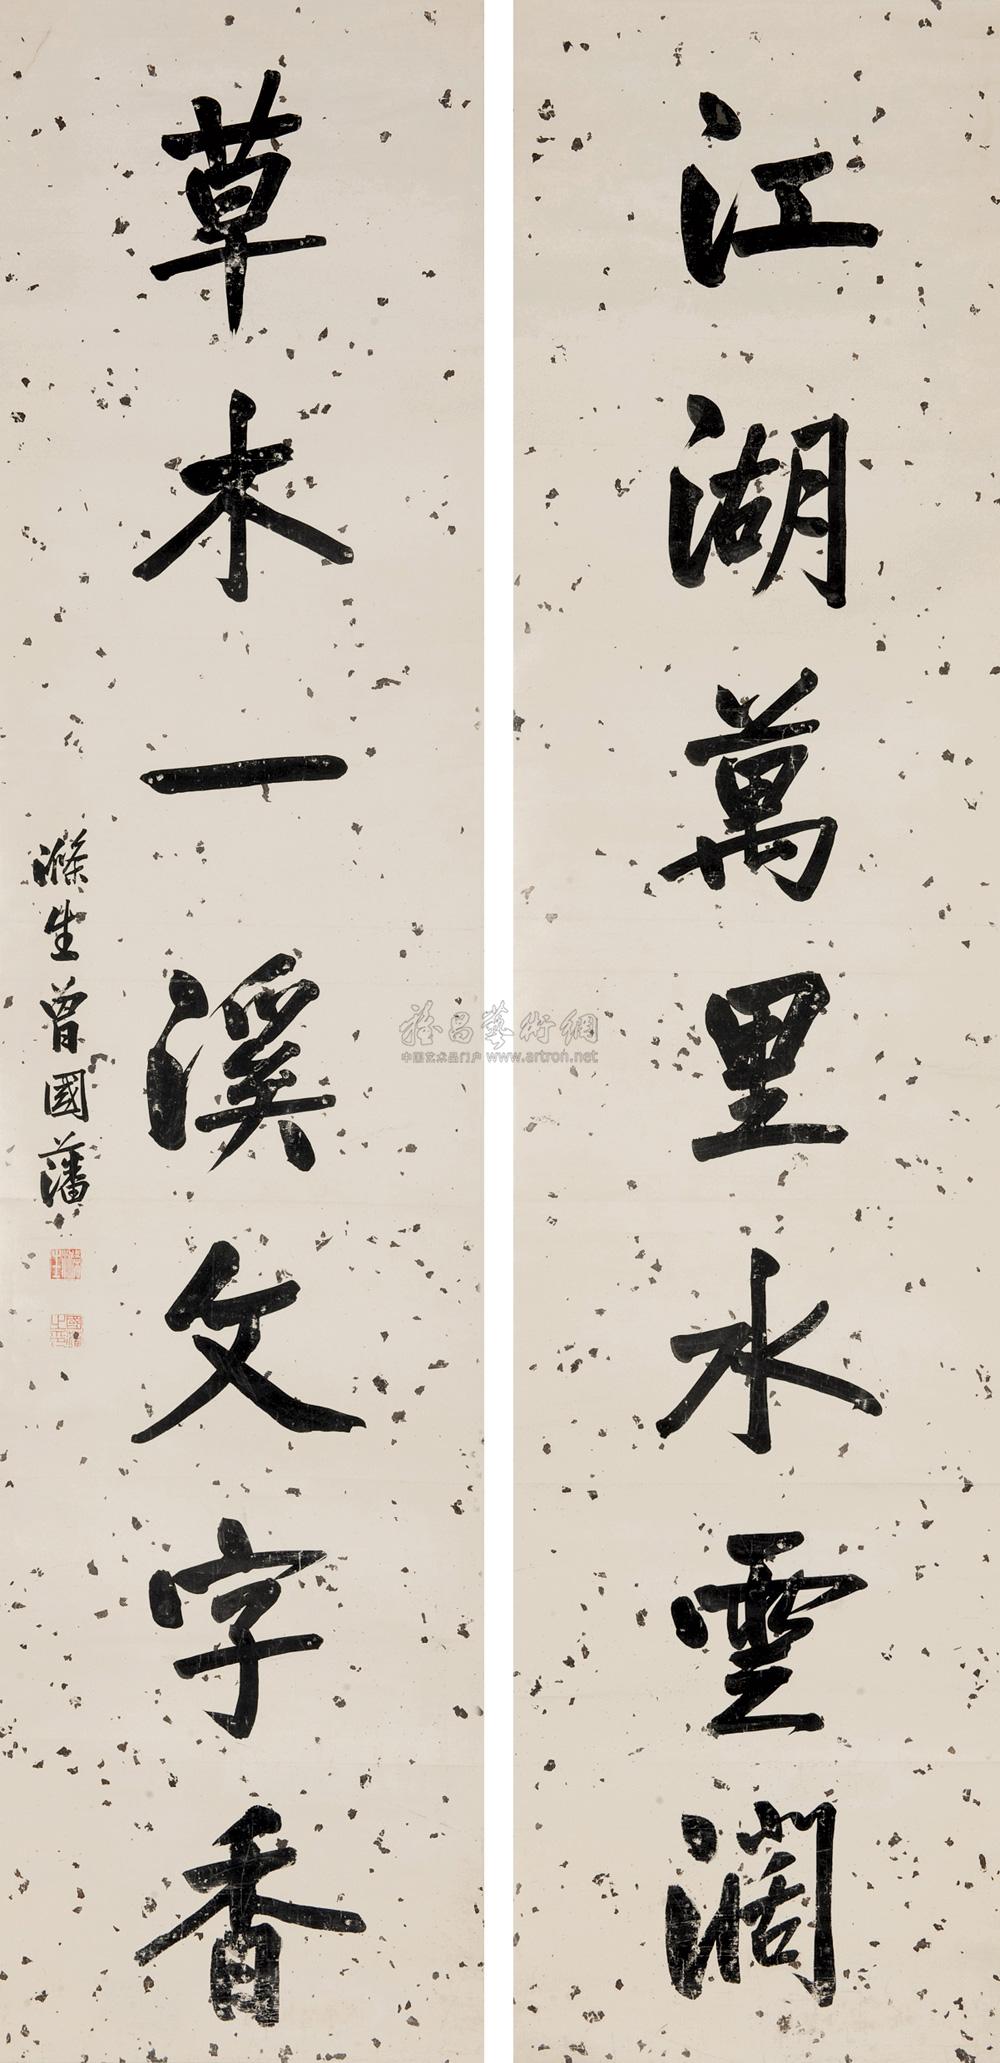 江湖萬里水雲濶
草木一溪文字香
滌生曾國藩
雅昌藝術網
中国艺术品门户 www.artron.net